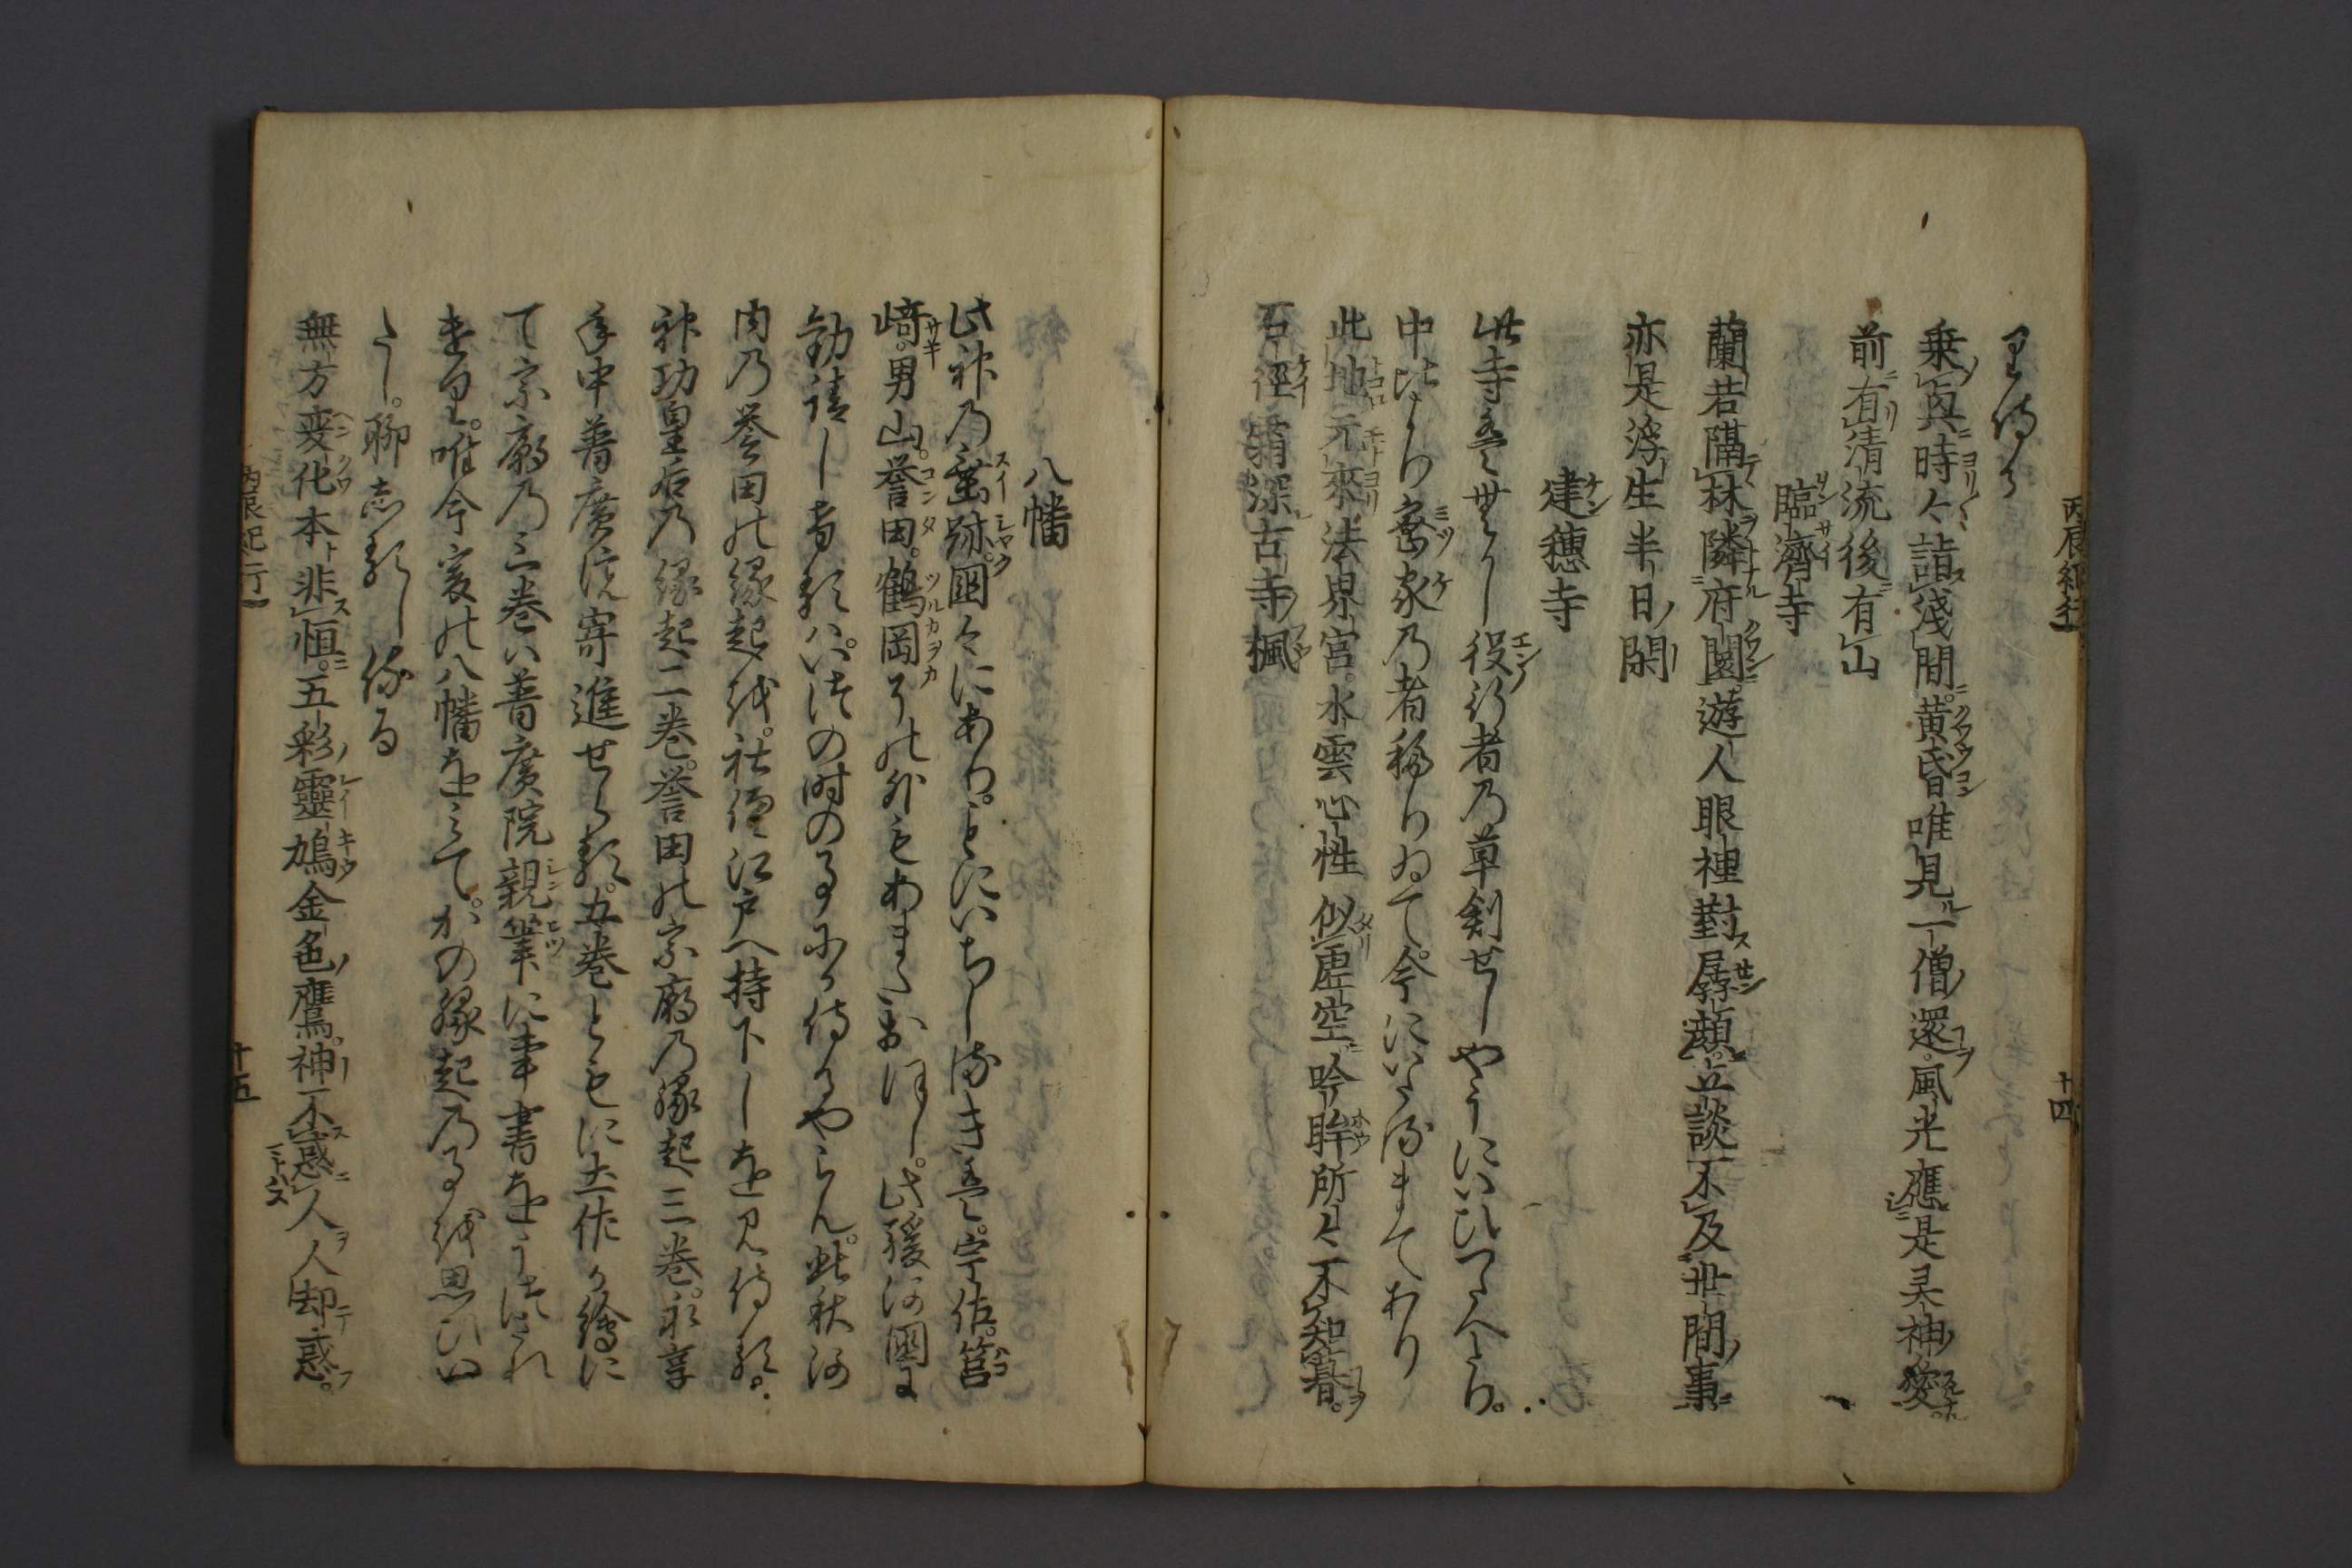 り侍る
乗輿時々詣浅間黄昏唯見一僧還風光應是灵神愛
前有清流後有山
臨濟寺
蘭若隔林隣府闤遊人眼裡對孱顔立談不及世間事
亦是浮生半日閑
建穂寺
此寺はむかし役行者の草創せしやうにいひつたへたり。
中比より密家の者移りゐて。今にいたるまてあり
此地元來法界宮。水雲心性似虚空吟眸所々不知暮。
石徑霜深古寺楓
八幡
此神乃垂跡。國々にあり。ことにいちしるきは。宇佐。筥
﨑。男山。誉田。鶴岡その外もあまたおほし。此駿河國に
勧請し奉るハ。いつの時の事にか侍るやらん。此秋河
内乃誉田の縁起を。社僧江戸へ持下しを見侍る。
神功皇后乃縁起二巻。誉田の宗廟乃縁起三巻。永享
年中普廣院寄進せらる。五巻ともに土佐か繪に
て宗廟乃三巻ハ普廣院親筆に事書をうつされ
たり。唯今爰の八幡をミて。かの縁起乃事を思ひい
たし。聊しるし侍る
無方変化本非恒。五彩靈鳩金色鷹。神不惑人人却惑。
丙辰紀行
十四
丙辰紀行
十五